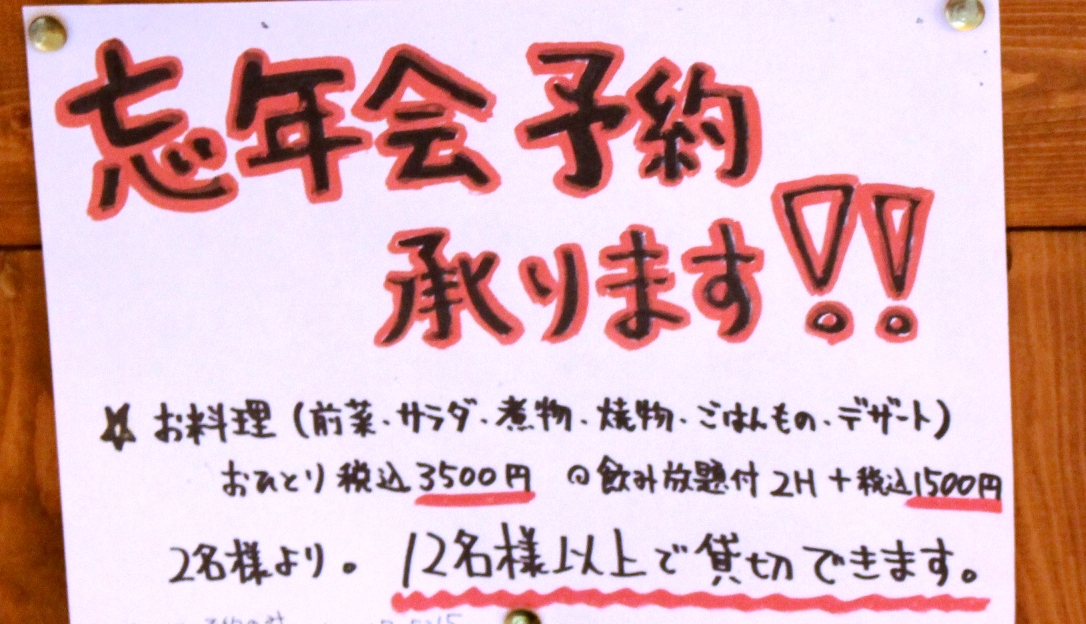 忘年会予約
承ります!!
☆ お料理(前菜・サラダ・煮物・焼物・ごはんもの・デザート)
おひとり税込3500円 ◎飲み放題付2H+税込1500円
2名様より。 12名様以上で貸切できます。